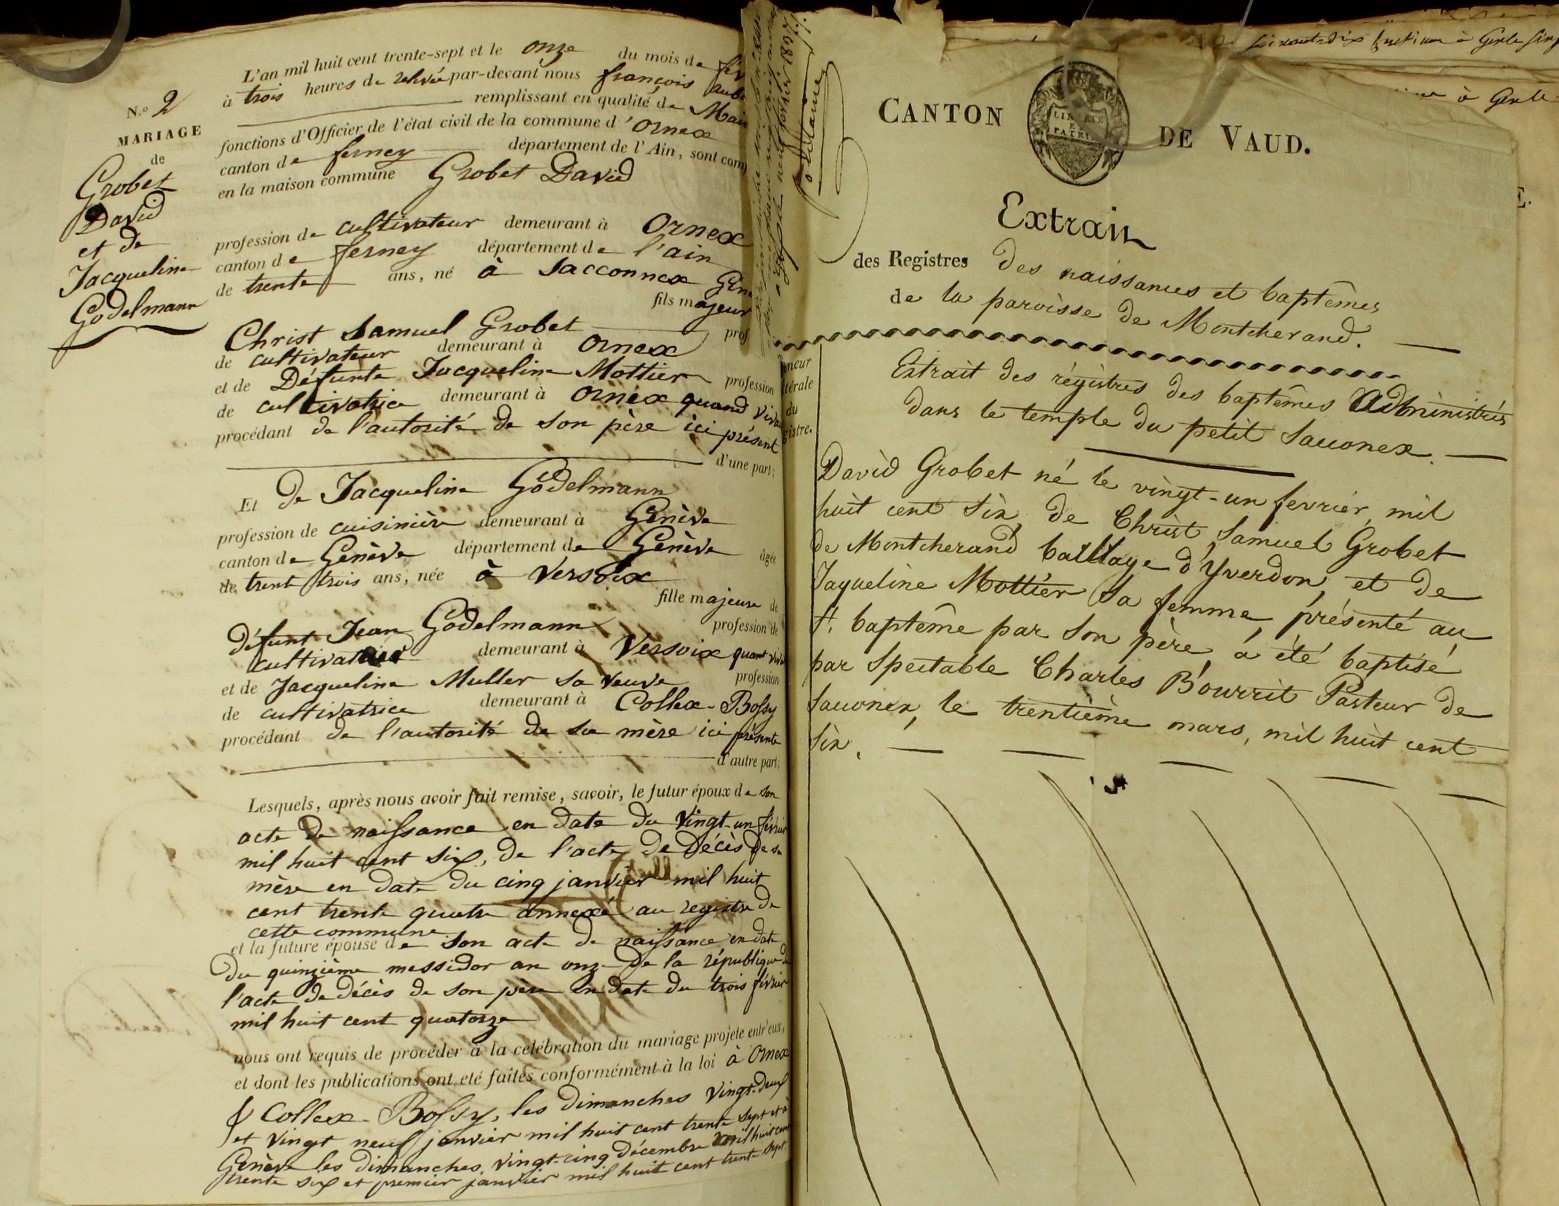 N.o 2
MARIAGE
de
Grobet
David
et de
Jacqueline
Godelmann
L'an mil huit cent trente-sept et le onze du mois de
à trois heures de relevée par-devant nous françois
remplissant en qualité de
fonctions d'Officier de l'état civil de la commune d'Ornex
canton de ferney département de l'Ain, sont
en la maison commune Grobet David
profession de cultivateur demeurant à Ornex
canton de ferney département de l'ain
de trente ans, né à Sacconnex
fils majeur
Christ Samuel Grobet
de cultivateur demeurant à Ornex
et de Défunte Jacqueline Mottier profession
de cultivatrice demeurant à Ornex quand
procédant de l'autorité de son père ici présent
d'une part;
Et de Jacqueline Godelmann
profession de cuisinière demeurant à Genève
canton de Genève département de Genève âgée
de trent trois ans, née à Versoix
fille majeure de
défunt Jean Godelmann profession de
demeurant à Versoix quant
et de Jacqueline Muller sa veuve profession
de cultivatrice demeurant à Collex-Bossy
procédant de l'autorité de sa mère ici présente
d'autre part;
Lesquels, après nous avoir fait remise, savoir, le futur époux de son
acte de naissance en date du vingt-un février
mil huit cent six, de l'acte de décès de sa
mère en date du cinq janvier mil huit
cent trente quatre annexé au registre de
cette commune
et la future épouse de son acte de naissance en date
du quinzième messidor an onze de la république
l'acte de décès de son père en date du trois février
mil huit cent quatorze
nous ont requis de procéder à la célébration du mariage projeté entr'eux,
et dont les publications ont été faites conformément à la loi à Ornex
Collex-Bossy, les dimanches vingt-deux
et vingt neuf janvier mil huit cent trente sept et à
Genève les dimanches, vingt-cinq décembre mil huit cent
trente six et premier janvier mil huit cent trente sept
CANTON DE VAUD.
LIBERTÉ
ET
PATRIE
Extrait
des Registres des naissances et baptêmes
de la paroisse de Montcherand.
Extrait des régistres des baptêmes administrés
dans le temple du petit Sauonex.
David Grobet né le vingt-un fevrier, mil
huit cent six, de Christ Samuel Grobet
de Montcherand baillage d'Yverdon, et de
Jaqueline Mottier sa femme, présenté au
St. baptême par son père a été baptisé
par Spectable Charles Bourrit Pasteur de
Sauonex, le trentième mars, mil huit cent
six.